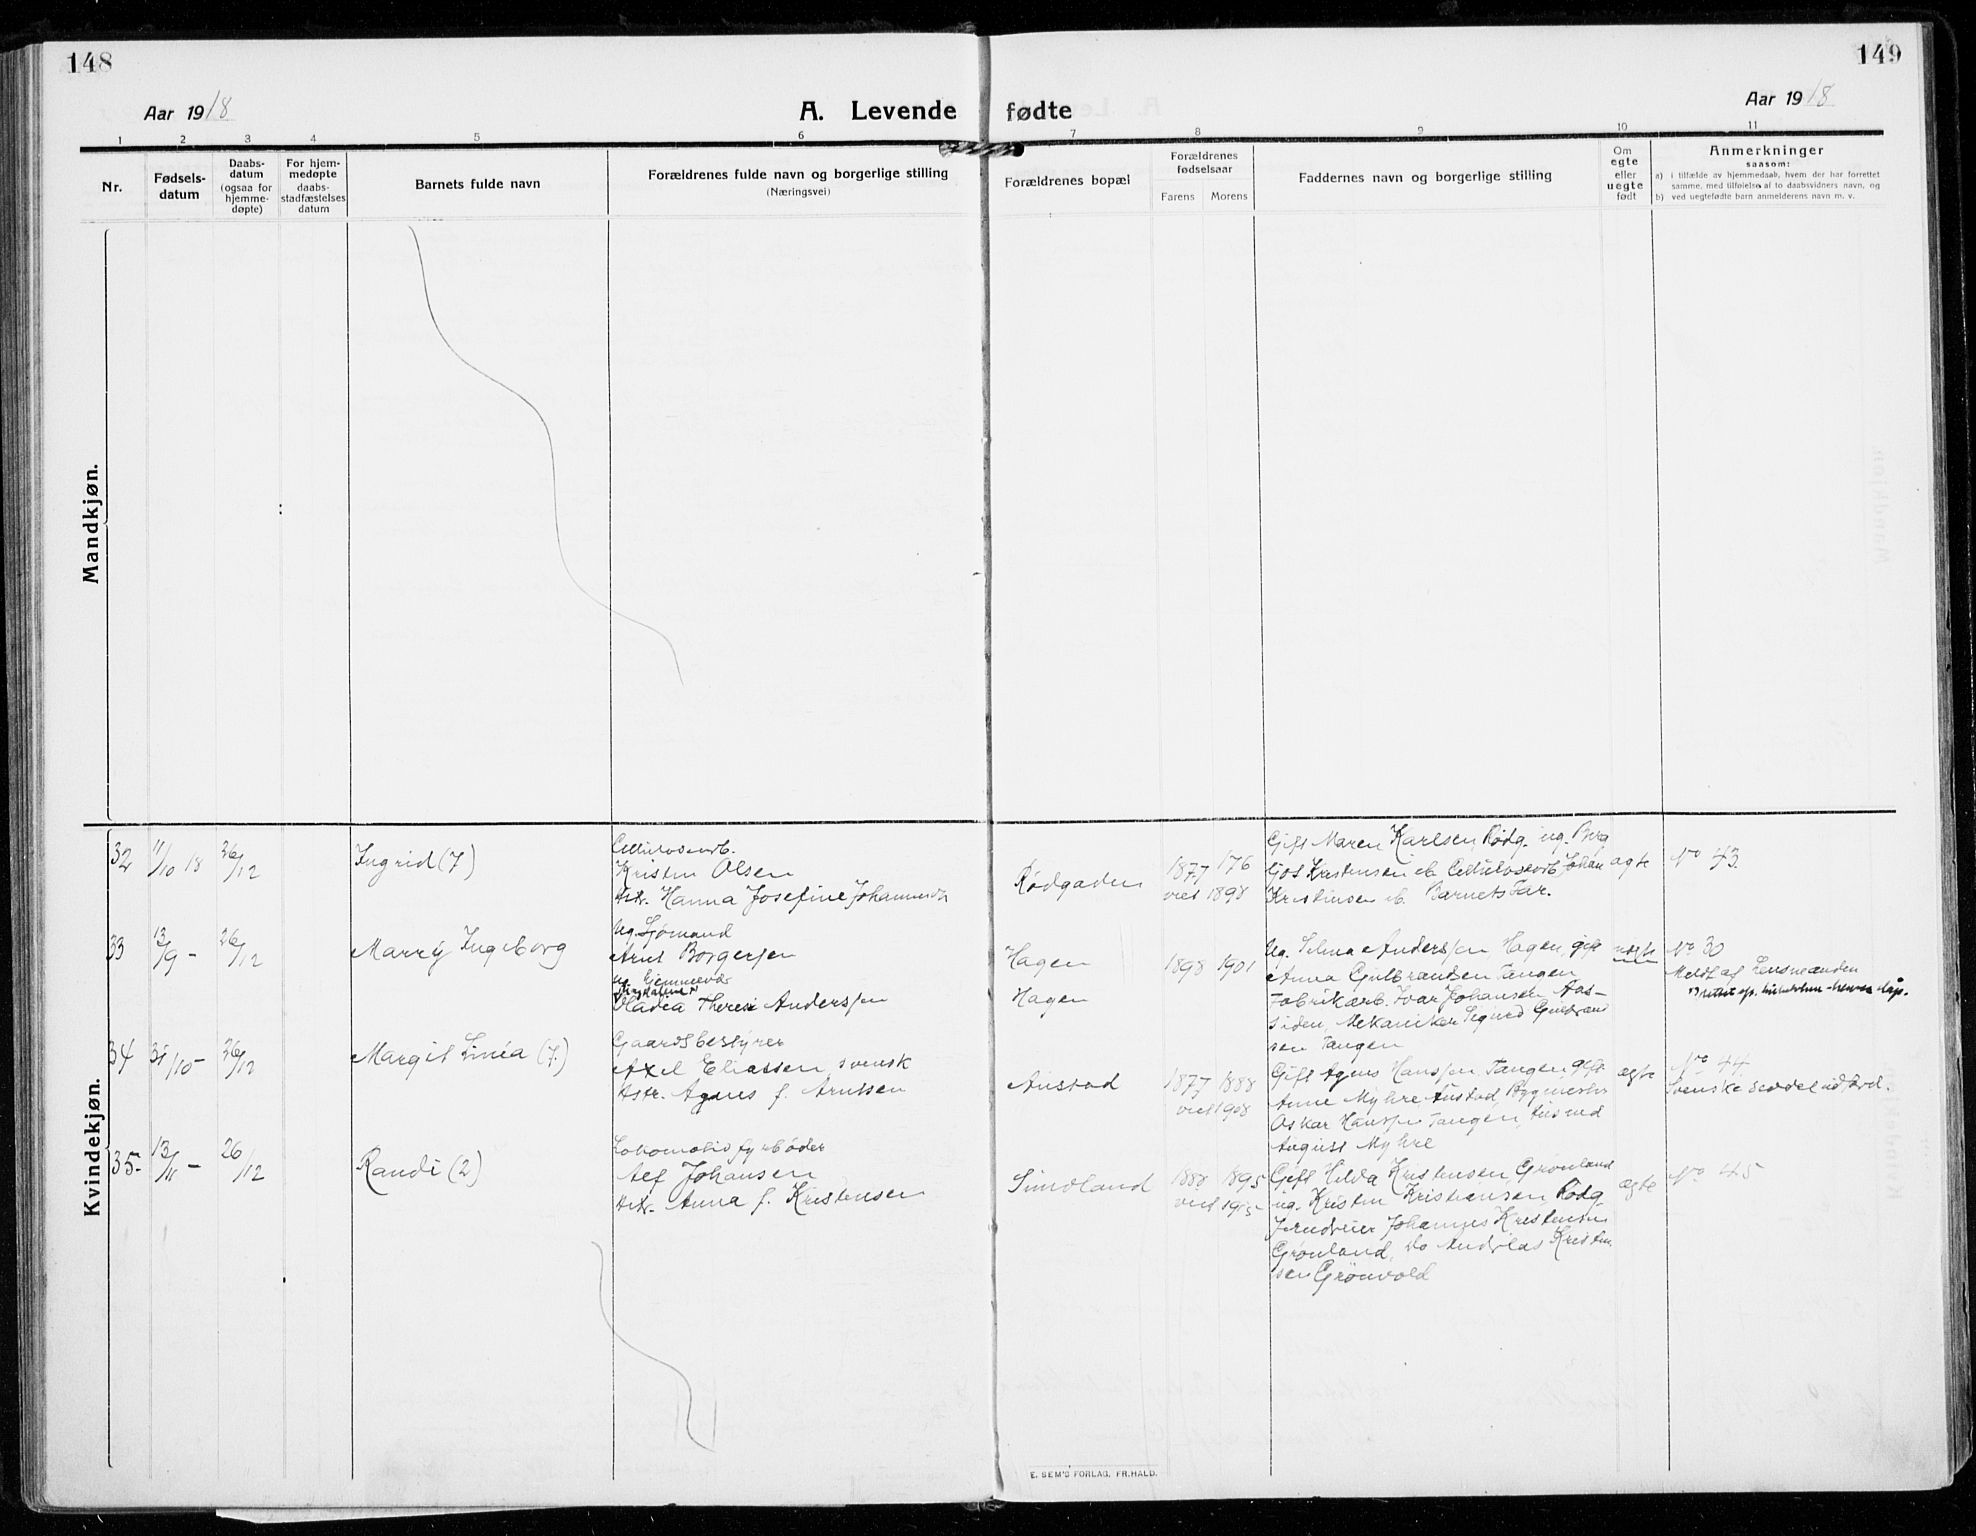 148
149
Aar 1918
A. Levende fødte
Aar 1918
1 2 3 4 5 6 7 8 9 10 11
Nr.
Fødsels-
datum
Daabs-
datum
(ogsaa for
hjemme-
døpte)
For hjem-
medøpte
daabs-
stadfæstelses
datum
Barnets fulde navn
Forældrenes fulde navn og borgerlige stilling
(Næringsvei)
Forældrenes bopæl
Forældrenes
fødselsaar
Farens Morens
Faddernes navn og borgerlige stilling
Om
egte
eller
uegte
født
Anmerkninger
saasom:
a) i tilfælde av hjemmedaab, hvem der har forrettet
samme, med tilføielse af to daabsvidners navn, og
b) ved uegtefødte barn anmelderens navn m. v.
Mandkjøn.
Kvindekjøn.
32 11/10 18 26/12 Ingrid (7)
Cellulosearb.
Kristin Olsen
Hstr. Hanna Josefine Johannesdr
Rødgaden
1877 176
viet 1898
Gift Maren Karlsen, Rødg. ug. Borg
Kristensen Cellulosearb Johan
Kristiansen Barnets Far.
egte
No 43
33 13/9 - 26/12 Marry Ingeborg
Ug. Sjømand
Arnt Borgersen
ug. hjemmevær
Therese Anderssen
Hagen
Hagen
1898 1901
Ug. Selma Anderssen, Hagen, gift
Anna Gulbrandsen Tangen
Fabrikarb. Ivar Johansen Aas-
siden, Mekaniker Sigurd Gulbrand
sen Tangen
uegte
No 30
Meldt af Lensmanden
34 31/10 - 26/12 Margit Linéa (7.)
Gaardsbestyrer
Axel Eliassen, svensk
Hstr. Agnes f. Arntsen
Austad
1877 1888
viet 1908
Gift Agnes Hanssen Tangen gift
Anne Myhre, Austad Bygmester
Oskar Hanssen Tangen,
August Myhre
egte
No 44
Svenske seddel udfærd.
35- 13/11 - 26/12 Randi (2)
Lokomotivfyrbøder
Alf Johansen
Hstr. Anna f. Kristensen
Sundland
1888 1895
viet 1915
Gift Hilda Kristensen, Grønland
ug. Kristin Kristiansen, Rødg-
Johannes Kristensen
Grønland, Do Andreas Kristen
sen Grønvold
egte
No 45
E. SEM'S FORLAG, FR.HALD.